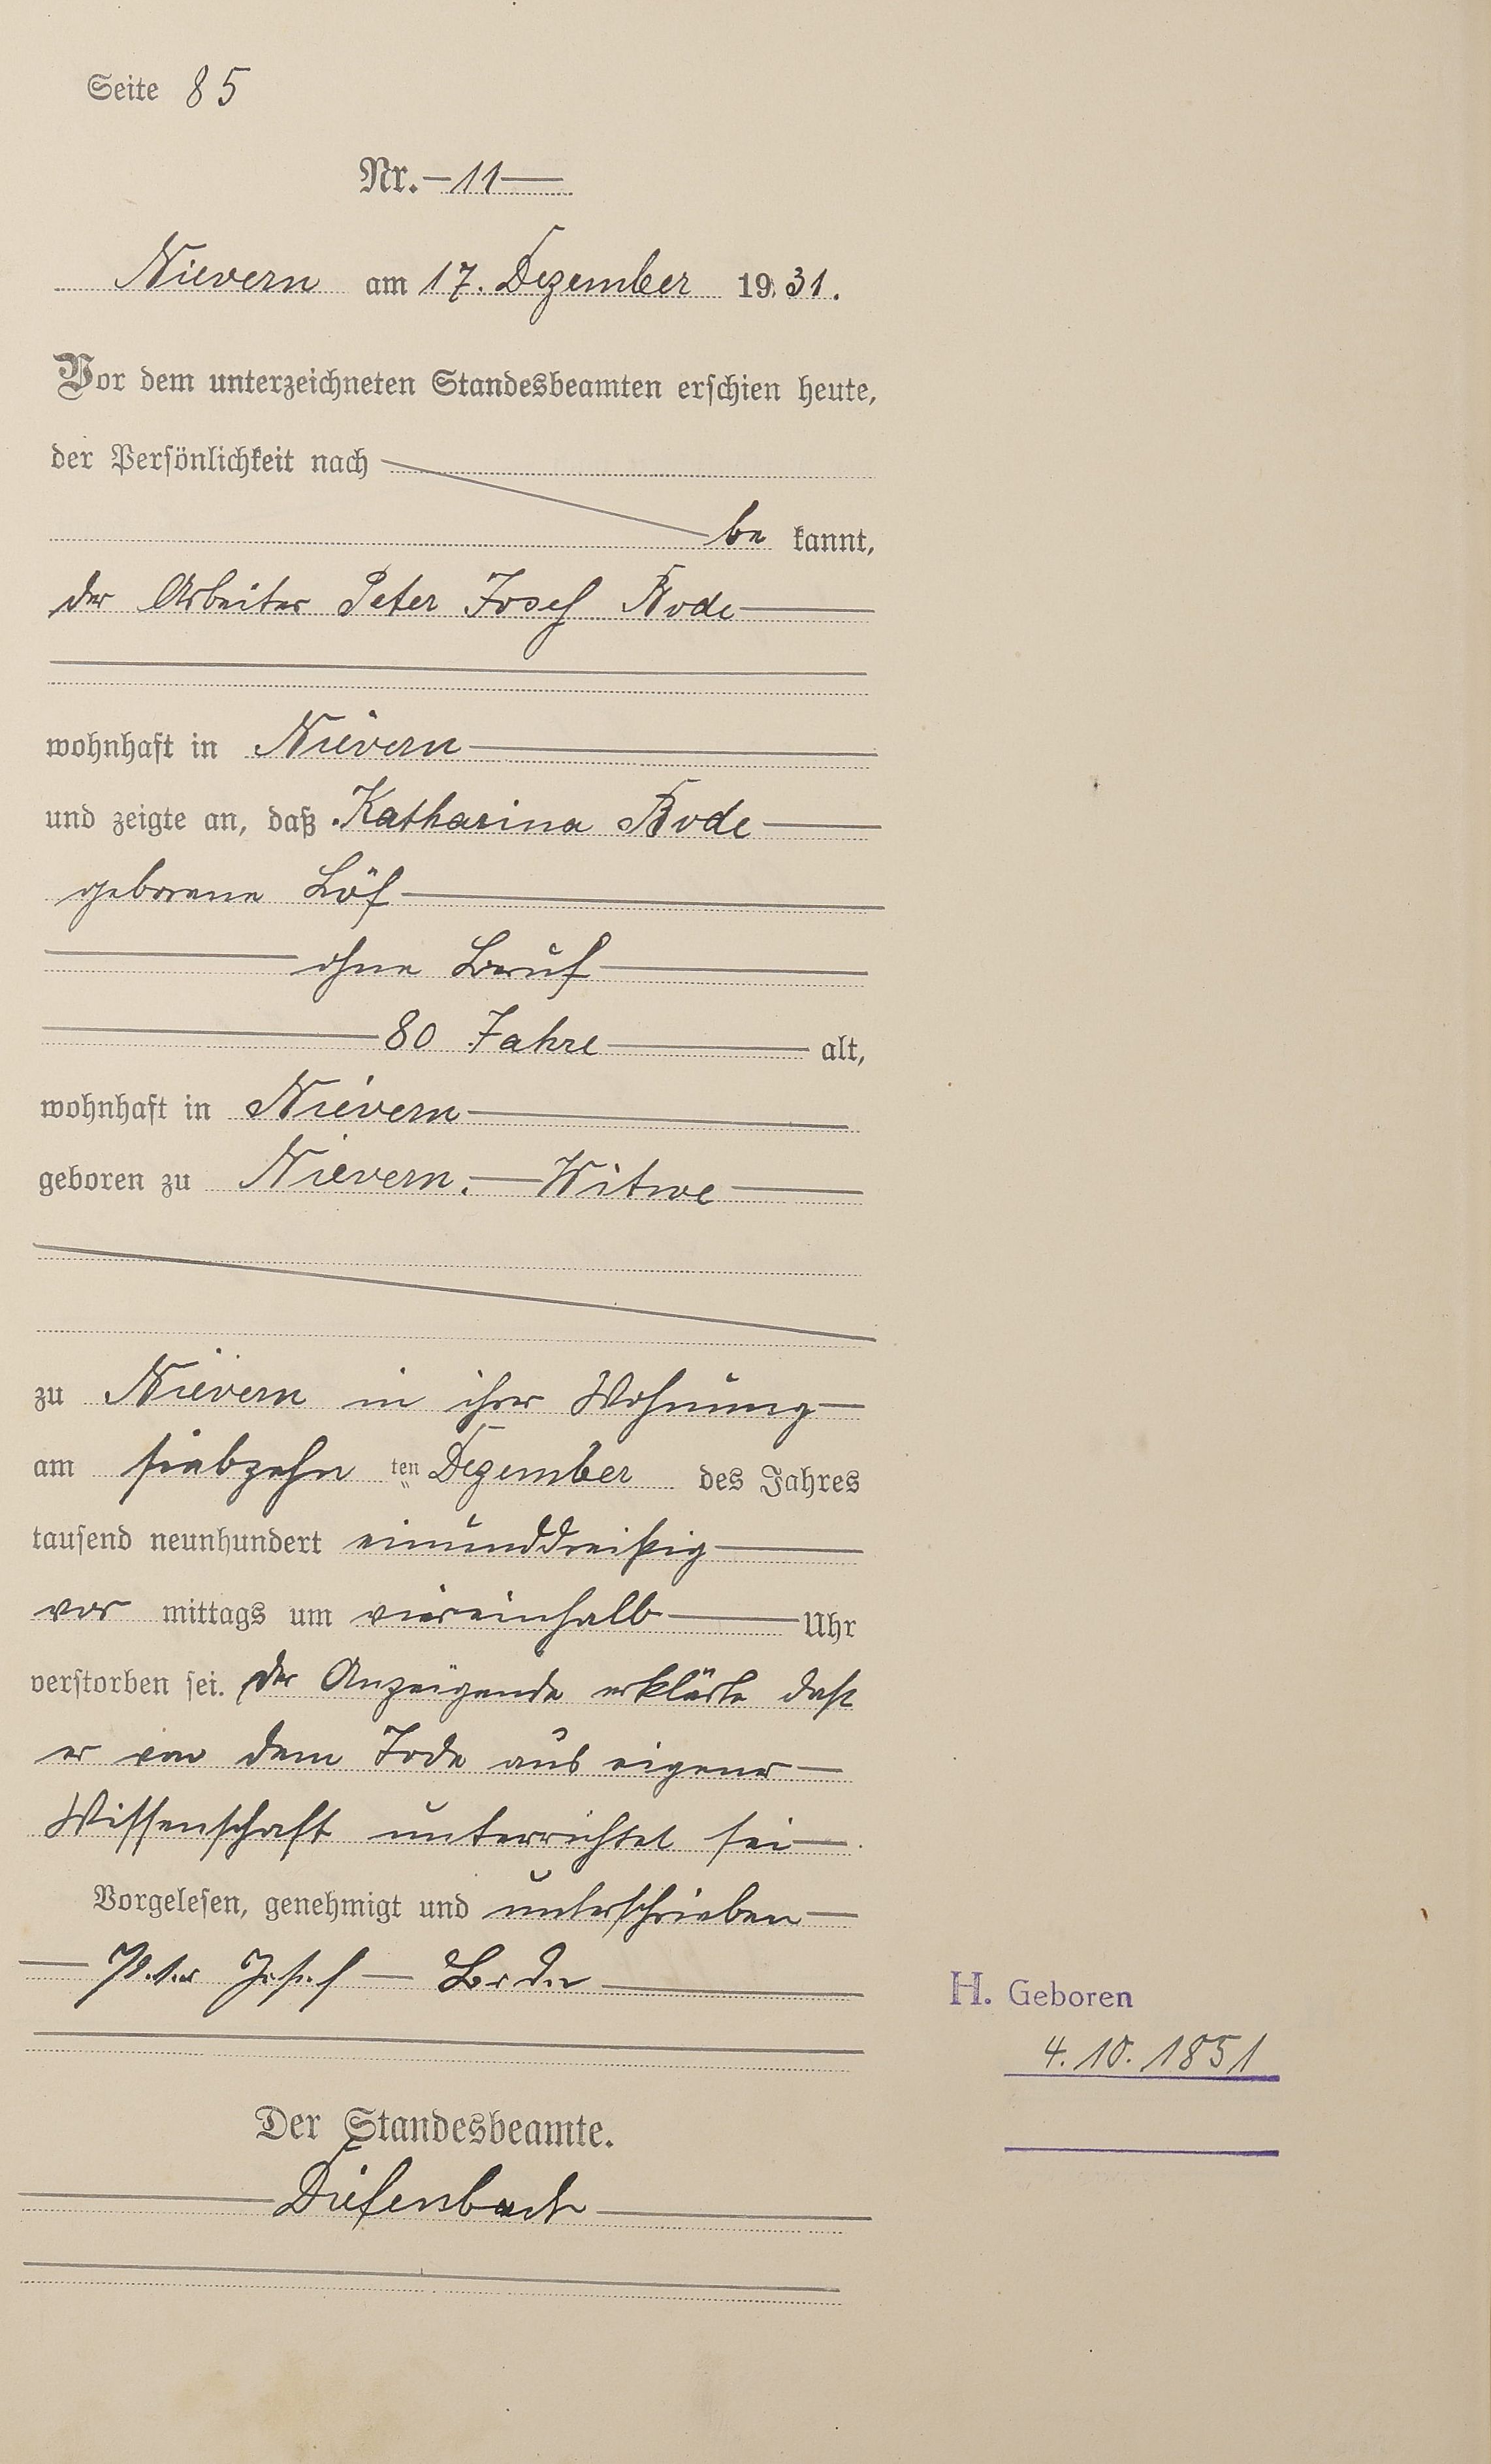 Seite 85
Nr. 11
Nievern am 17. Dezember 1931.
Vor dem unterzeichneten Standesbeamten erschien heute,
der Persönlichkeit nach
be kannt,
der Arbeiter Peter Josef Bode
wohnhaft in Nievern
und zeigte an, daß Katharina Bode
geborene Löf
ohne Beruf
80 Jahre alt,
wohnhaft in Nievern
geboren zu Nievern. Witwe
zu Nievern in ihrer Wohnung
am siebzehn ten Dezember des Jahres
tausend neunhundert einunddreißig
vor mittags um viereinhalb Uhr
verstorben sei. Der Anzeigende erklärte daß
er von dem Tode aus eigener
Wissenschaft unterrichtet sei
Vorgelesen, genehmigt und unterschrieben
Peter Josef Bode
H. Geboren
4. 10. 1851
Der Standesbeamte.
Diefenbach